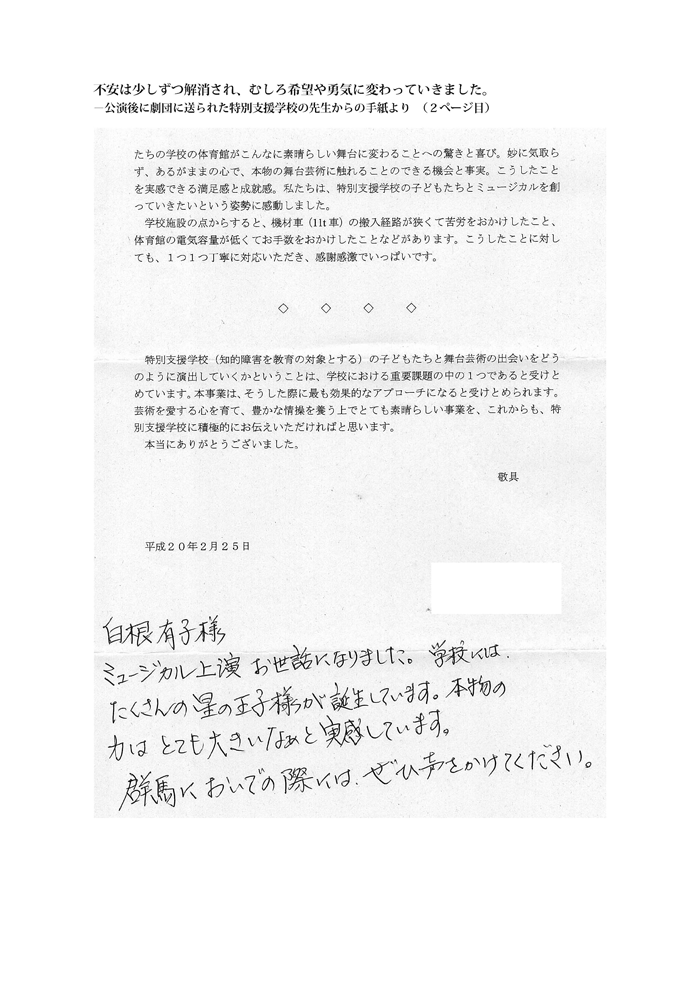 不安は少しずつ解消され、むしろ希望や勇気に変わっていきました。
―公演後に劇団に送られた特別支援学校の先生からの手紙より （２ページ目）
たちの学校の体育館がこんなに素晴らしい舞台に変わることへの驚きと喜び。妙に気取ら
ず、あるがままの心で、本物の舞台芸術に触れることのできる機会と事実。こうしたこと
を実感できる満足感と成就感。私たちは、特別支援学校の子どもたちとミュージカルを創
っていきたいという姿勢に感動しました。
学校施設の点からすると、機材車（11t 車）の搬入経路が狭くて苦労をおかけしたこと、
体育館の電気容量が低くてお手数をおかけしたことなどがあります。こうしたことに対し
ても、１つ１つ丁寧に対応いただき、感謝感激でいっぱいです。
◇ ◇ ◇ ◇
特別支援学校（知的障害を教育の対象とする）の子どもたちと舞台芸術の出会いをどう
のように演出していくかということは、学校における重要課題の中の１つであると受けと
めています。本事業は、そうした際に最も効果的なアプローチになると受けとめられます。
芸術を愛する心を育て、豊かな情操を養う上でとても素晴らしい事業を、これからも、特
別支援学校に積極的にお伝えいただければと思います。
本当にありがとうございました。
敬具
平成２０年２月２５日
白根有子様
ミュージカル上演 お世話になりました。学校には、
たくさんの星の王子様が誕生しています。本物の
力は とても大きいなぁと実感しています。
群馬においでの際には、ぜひ声をかけてください。